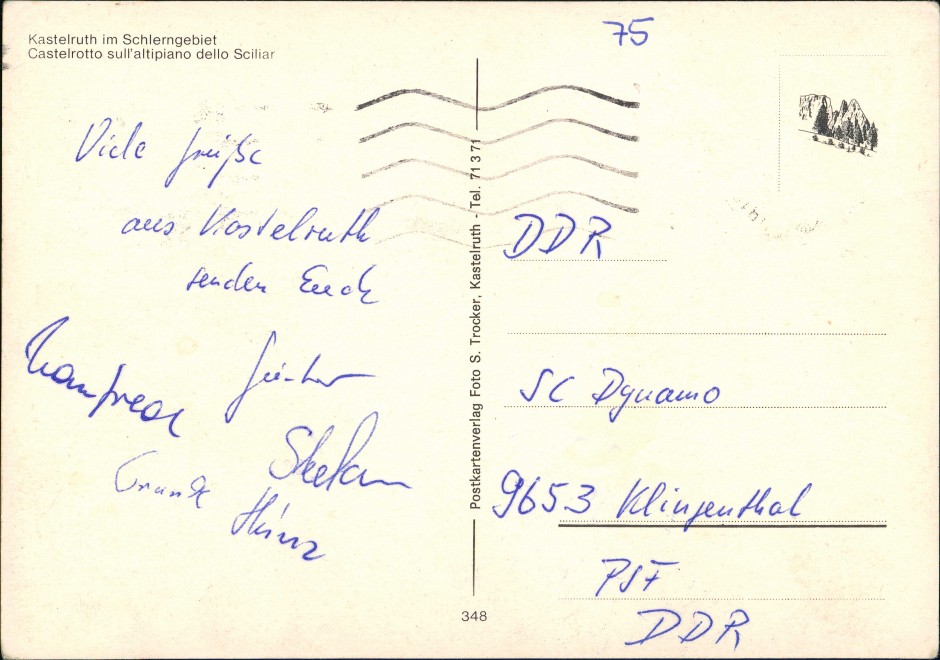 Kastelruth im Schlerngebiet
Castelrotto sull'altipiano dello Sciliar
75
Viele Grüße
aus Kastelruth
senden Euch
Manfred
Günter
Stefan
Frank
Heinz
Postkartenverlag Foto S. Trocker, Kastelruth - Tel. 71371
348
DDR
SC Dynamo
9653 Klingenthal
PSF
DDR